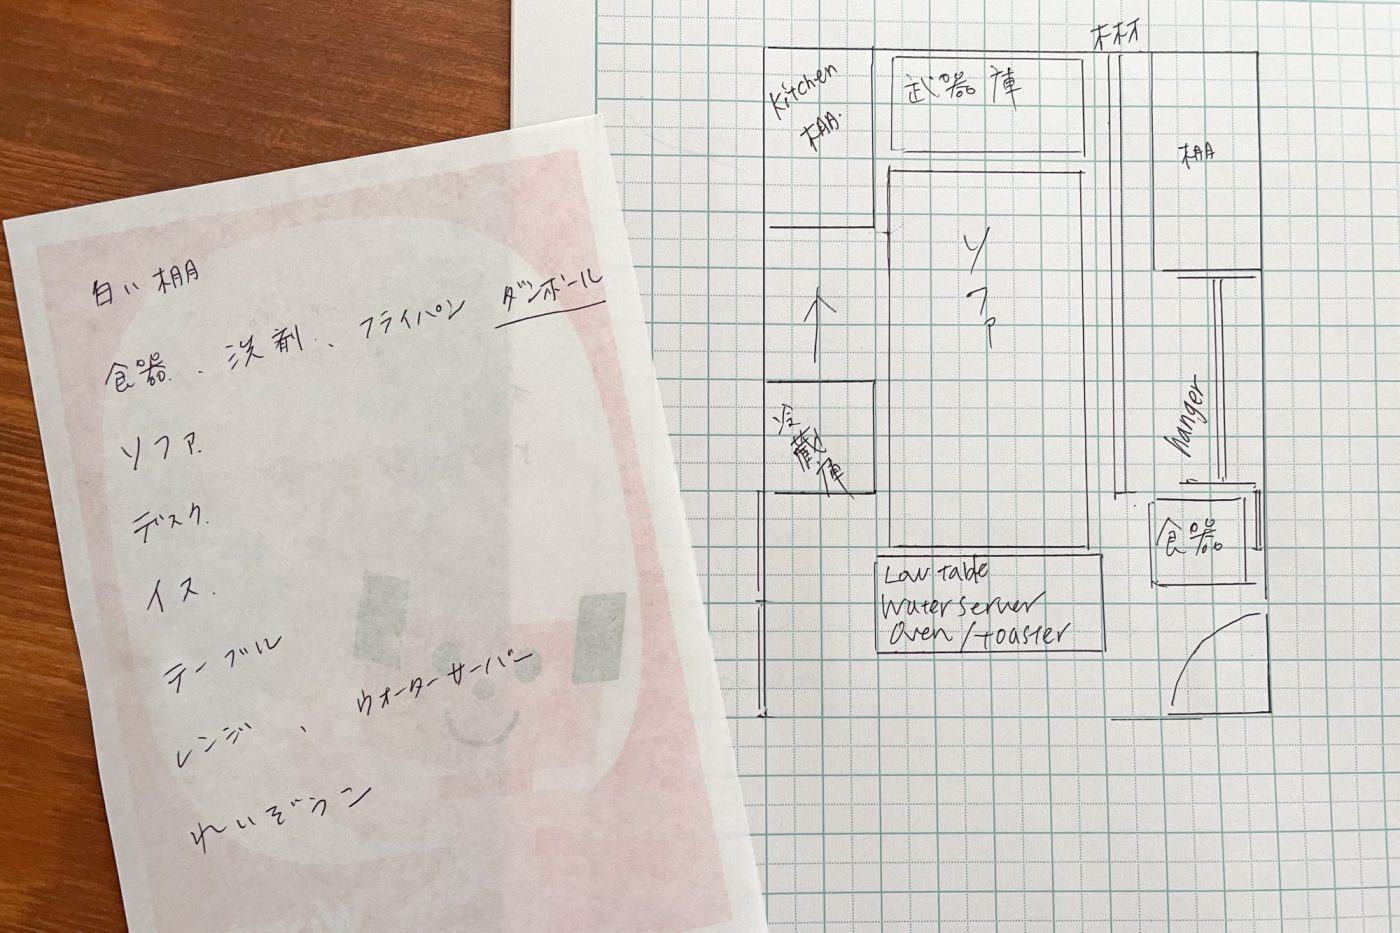 白い棚
食器、洗剤、フライパン ダンボール
ソファ
デスク
イス
テーブル
レンジ、ウォーターサーバー
れいぞうこ
木材
Kitchen
棚
武器庫
棚
ソファ
冷蔵庫
hanger
食器
Low table
Water server
Oven / toaster